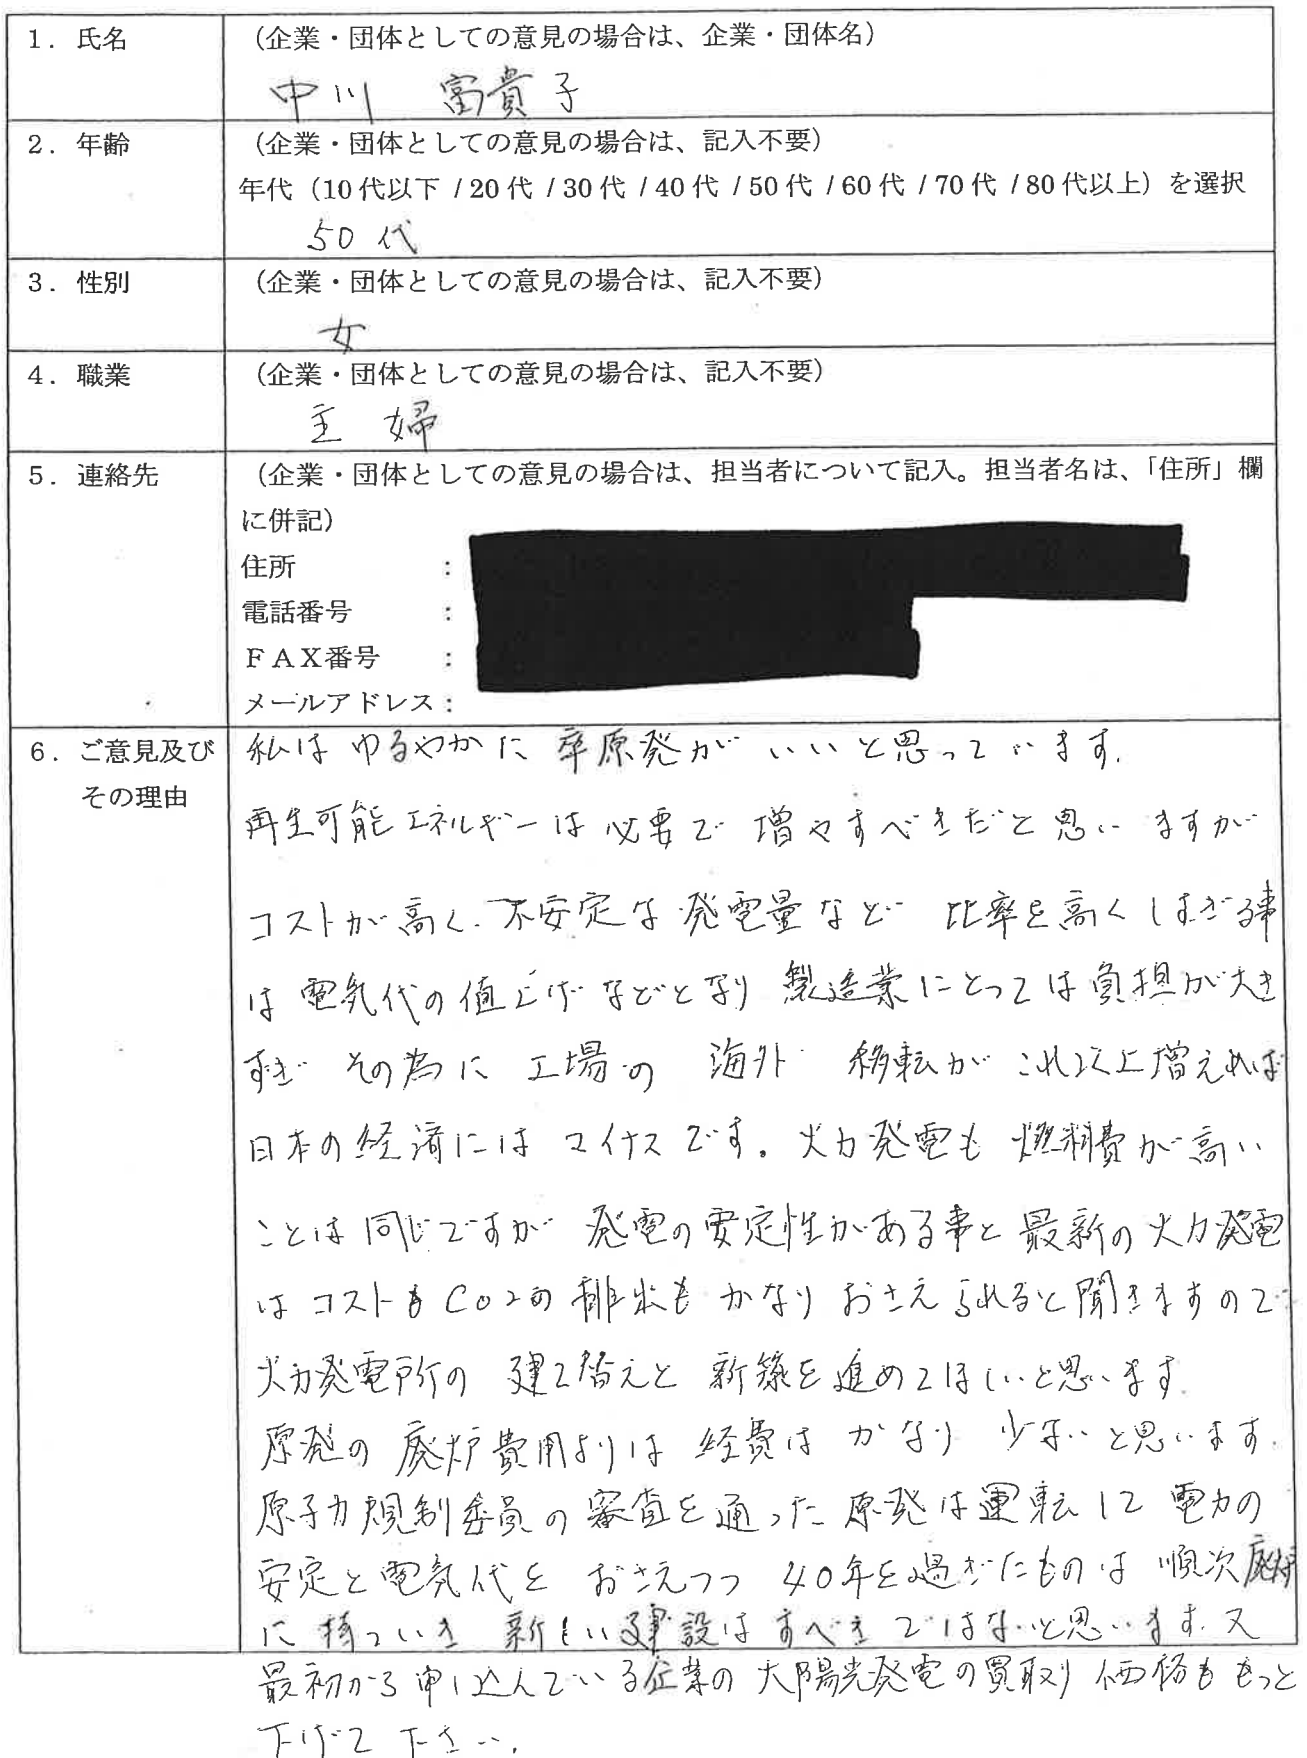 1．氏名
（企業・団体としての意見の場合は、企業・団体名）
中川 富貴子
2．年齢
（企業・団体としての意見の場合は、記入不要）
年代（10代以下 / 20代 / 30代 / 40代 / 50代 / 60代 / 70代 / 80代以上）を選択
50代
3．性別
（企業・団体としての意見の場合は、記入不要）
女
4．職業
（企業・団体としての意見の場合は、記入不要）
主婦
5．連絡先
（企業・団体としての意見の場合は、担当者について記入。担当者名は、「住所」欄
に併記）
住所 ：
電話番号 ：
ＦＡＸ番号 ：
メールアドレス：
6．ご意見及び
その理由
私は ゆるやかに 卒原発が いいと思っています.
再生可能エネルギーは必要で 増やすべきだと思いますが
コストが高く、不安定な発電量など 比率を高くしすぎる事
は電気代の値上げなどとなり 製造業にとっては負担が大き
すぎ その為に 工場の 海外 移転が これ以上増えれば
日本の経済には マイナスです。火力発電も 燃料費が高い
ことは同じですが 発電の安定性がある事と最新の火力発電
はコストもCO2の排出も かなり おさえられると聞きますので
火力発電所の 建て替えと 新築を進めてほしいと思います.
原発の 廃炉費用よりは 経費は かなり 少ないと思います.
原子力規制委員の審査を通った原発は運転して 電力の
安定と電気代を おさえつつ 40年を過ぎたものは 順次廃炉
に持っていき 新しい建設はすべきではないと思います. 又
最初から申し込んでいる企業の 太陽光発電の買取り価格ももっと
下げて下さい.